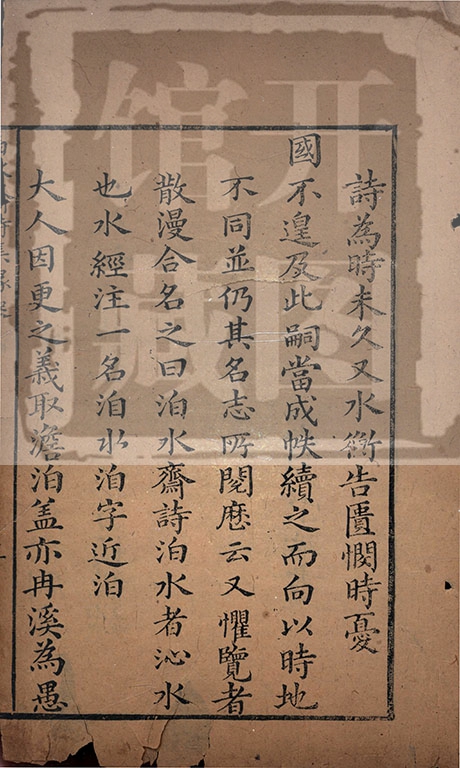 詩為時未久又水衡告匱憫時憂
國不遑及此嗣當成帙續之而向以時地
不同並仍其名志所閱厯云又懼覽者
散漫合名之曰泊水齋詩泊水者沁水
也水經注一名洎水洎字近泊
大人因更之義取澹泊盖亦冉溪為愚
开图
馆藏